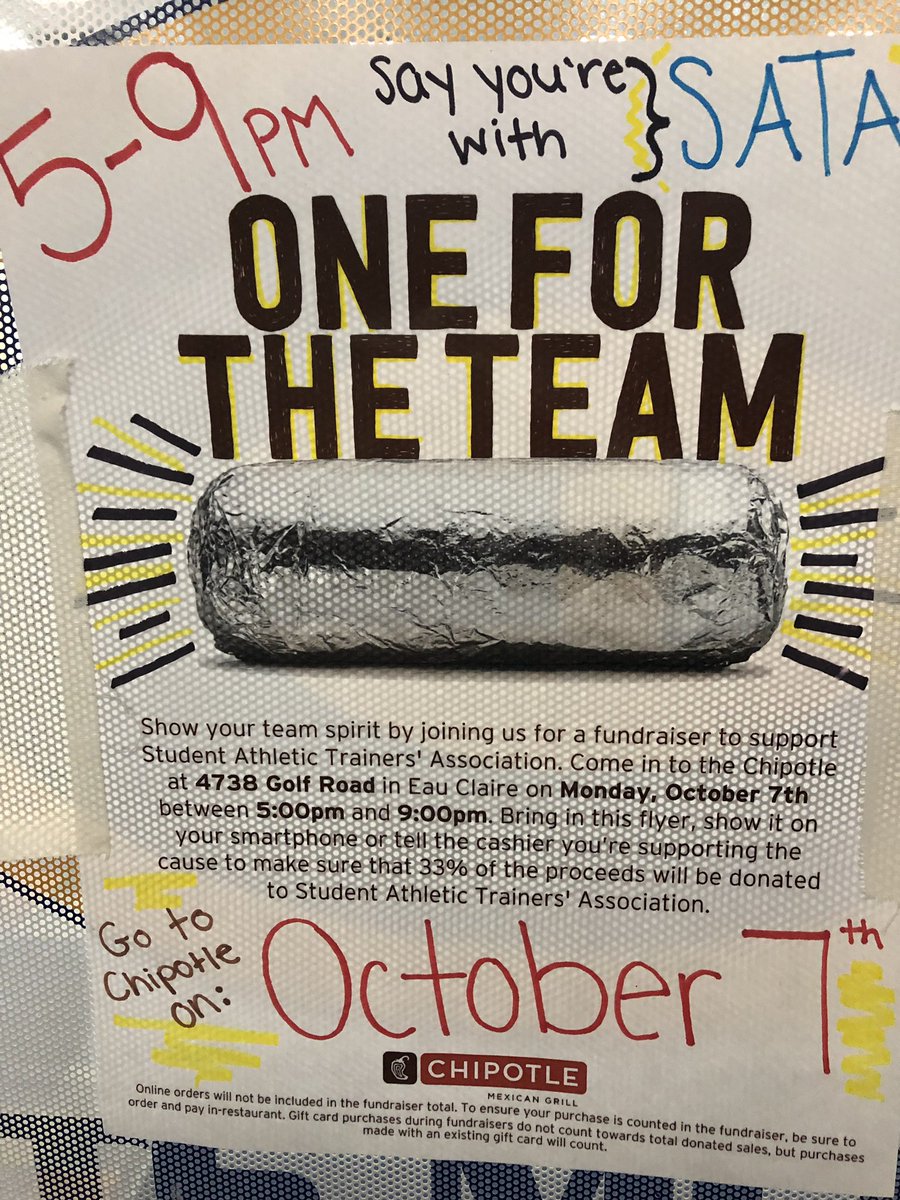 5-9PM
say you're
with
SATA
ONE FOR
THE TEAM
Show your team spirit by joining us for a fundraiser to support
Student Athletic Trainers' Association. Come in to the Chipotle
at 4738 Golf Road in Eau Claire on Monday, October 7th
between 5:00pm and 9:00pm. Bring in this flyer, show it on
your smartphone or tell the cashier you're supporting the
cause to make sure that 33% of the proceeds will be donated
to Student Athletic Trainers' Association.
Go to
Chipotle
on:
October 7th
CHIPOTLE
MEXICAN GRILL
Online orders will not be included in the fundraiser total. To ensure your purchase is counted in the fundraiser, be sure to
order and pay in-restaurant. Gift card purchases during fundraisers do not count towards total donated sales, but purchases
made with an existing gift card will count.